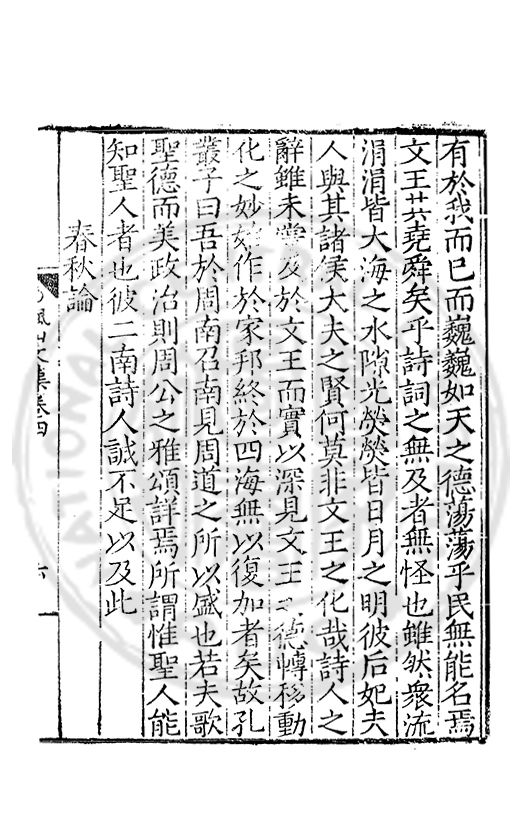 有於我而已而巍巍如天之德蕩蕩乎民無能名焉
文王其堯舜矣乎詩詞之無及者無怪也雖然衆流
涓涓皆大海之水隙光熒熒皆日月之明彼后妃夫
人與其諸侯大夫之賢何莫非文王之化哉詩人之
辭雖未嘗及於文王而實以深見文王之德轉移動
化之妙始作於家邦終於四海無以復加者矣故孔
叢子曰吾於周南召南見周道之所以盛也若夫歌
聖德而美政治則周公之雅頌詳焉所謂惟聖人能
知聖人者也彼二南詩人誠不足以及此
春秋論
風山文集卷四
六
NATIONAL